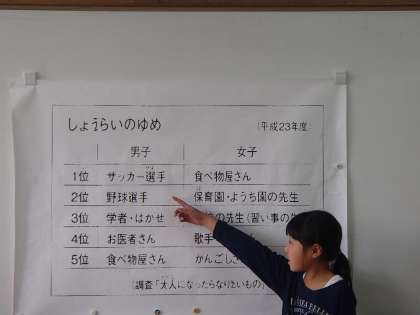 しょうらいのゆめ （平成23年度）
男子 女子
1位 サッカー選手 食べ物屋さん
2位 野球選手 保育園・ようち園の先生
3位 学者・はかせ の先生（習い事の
4位 お医者さん 歌手
5位 食べ物屋さん かんごし
（調査「大人になったらなりたいもの」